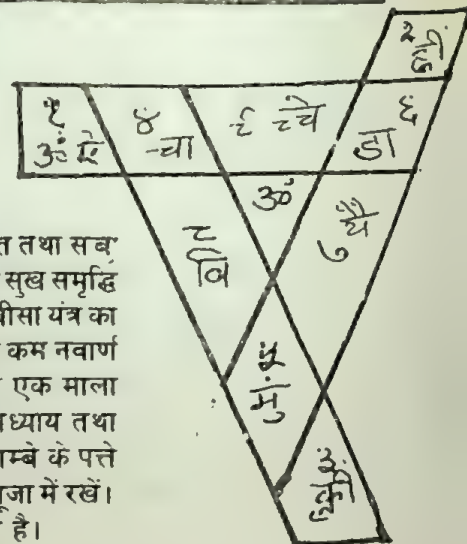 २
ह्रीं
१
ॐ ऐं
४
चा
९ च्चे
६
डा
ॐ
८
वि
७ यै
५
मुं
३
क्लीं
त तथा सब
सुख समृद्धि
बीसा यंत्र का
कम नवार्ण
एक माला
ध्याय तथा
ाम्बे के पत्ते
पूजा में रखें।
है।